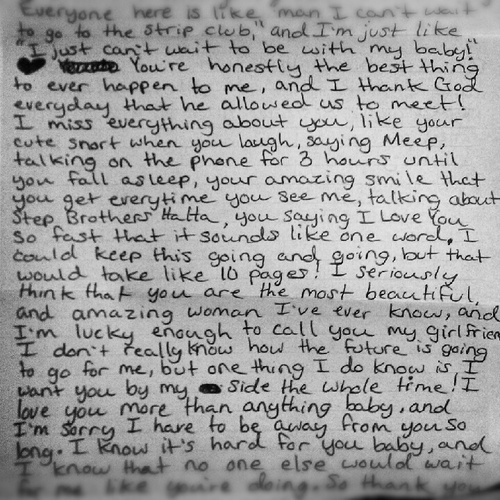 Everyone here is like "man I can't wait
to go to the strip club," and I'm just like
"I just can't wait to be with my baby!"
You're honestly the best thing
to ever happen to me, and I thank God
everyday that he allowed us to meet!
I miss everything about you, like your
cute snort when you laugh, saying Meep,
talking on the phone for 3 hours until
you fall asleep, your amazing smile that
you get everytime you see me, talking about
Step Brothers Hatta, you saying I Love You
so fast that it sounds like one word. I
could keep this going and going, but that
would take like 10 pages! I seriously
think that you are the most beautiful,
and amazing woman I've ever know, and
I'm lucky enough to call you my girlfrien
I don't really know how the future is going
to go for me, but one thing I do know is I
want you by my side the whole time! I
love you more than anything baby, and
I'm sorry I have to be away from you so
long. I know it's hard for you baby, and
I know that no one else would wait
for me like you're doing. So thank you